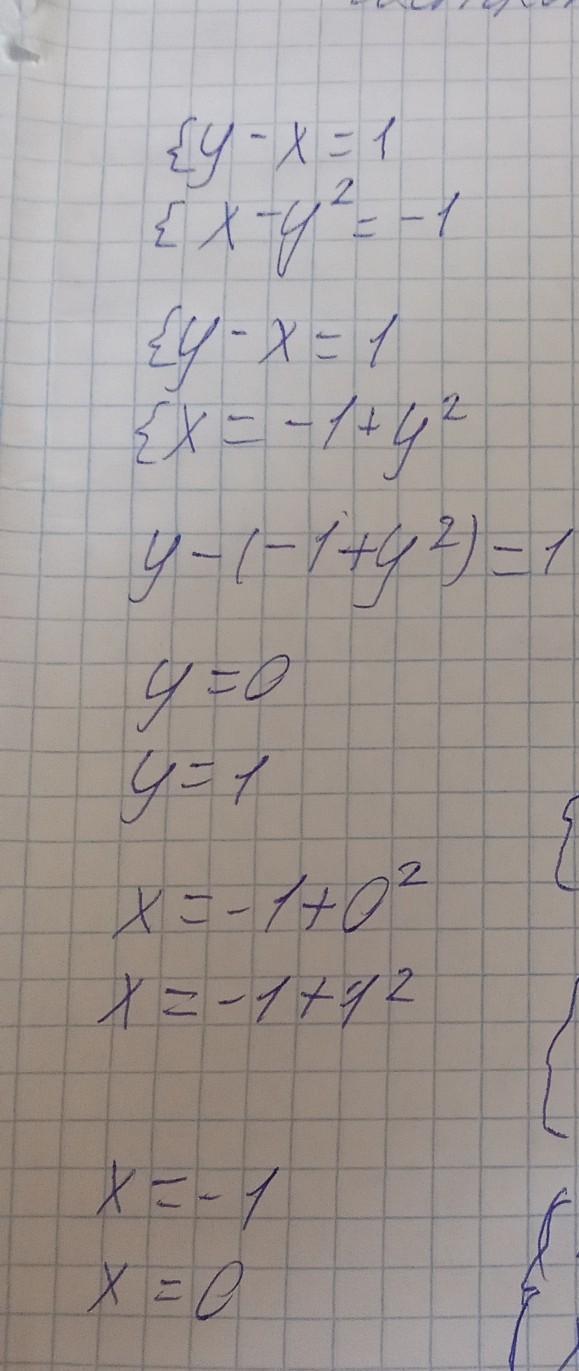 {y - x = 1
{x - y² = -1
{y - x = 1
{x = -1 + y²
y - (-1 + y²) = 1
y = 0
y = 1
x = -1 + 0²
x = -1 + 1²
x = -1
x = 0